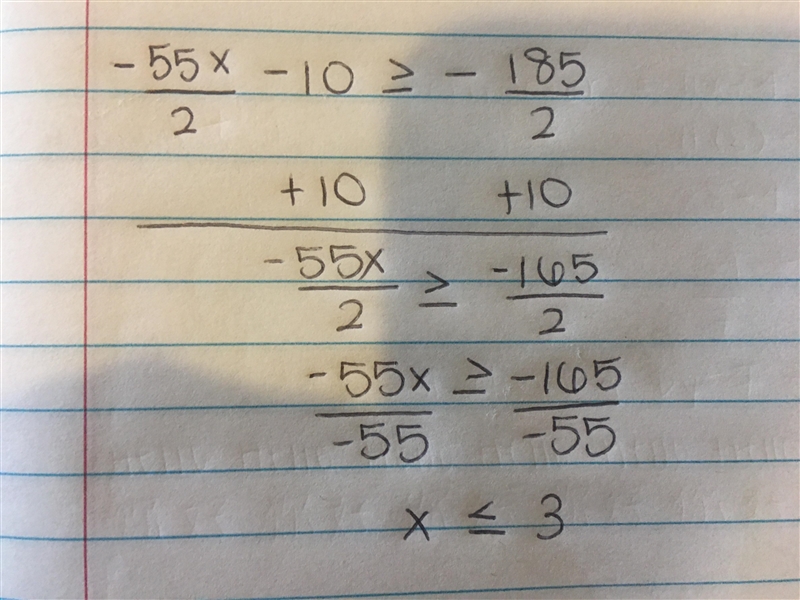 -55x/2 -10 ≥ - 185/2
+10 +10
-55x/2 ≥ -165/2
-55x/-55 ≥ -165/-55
x ≤ 3